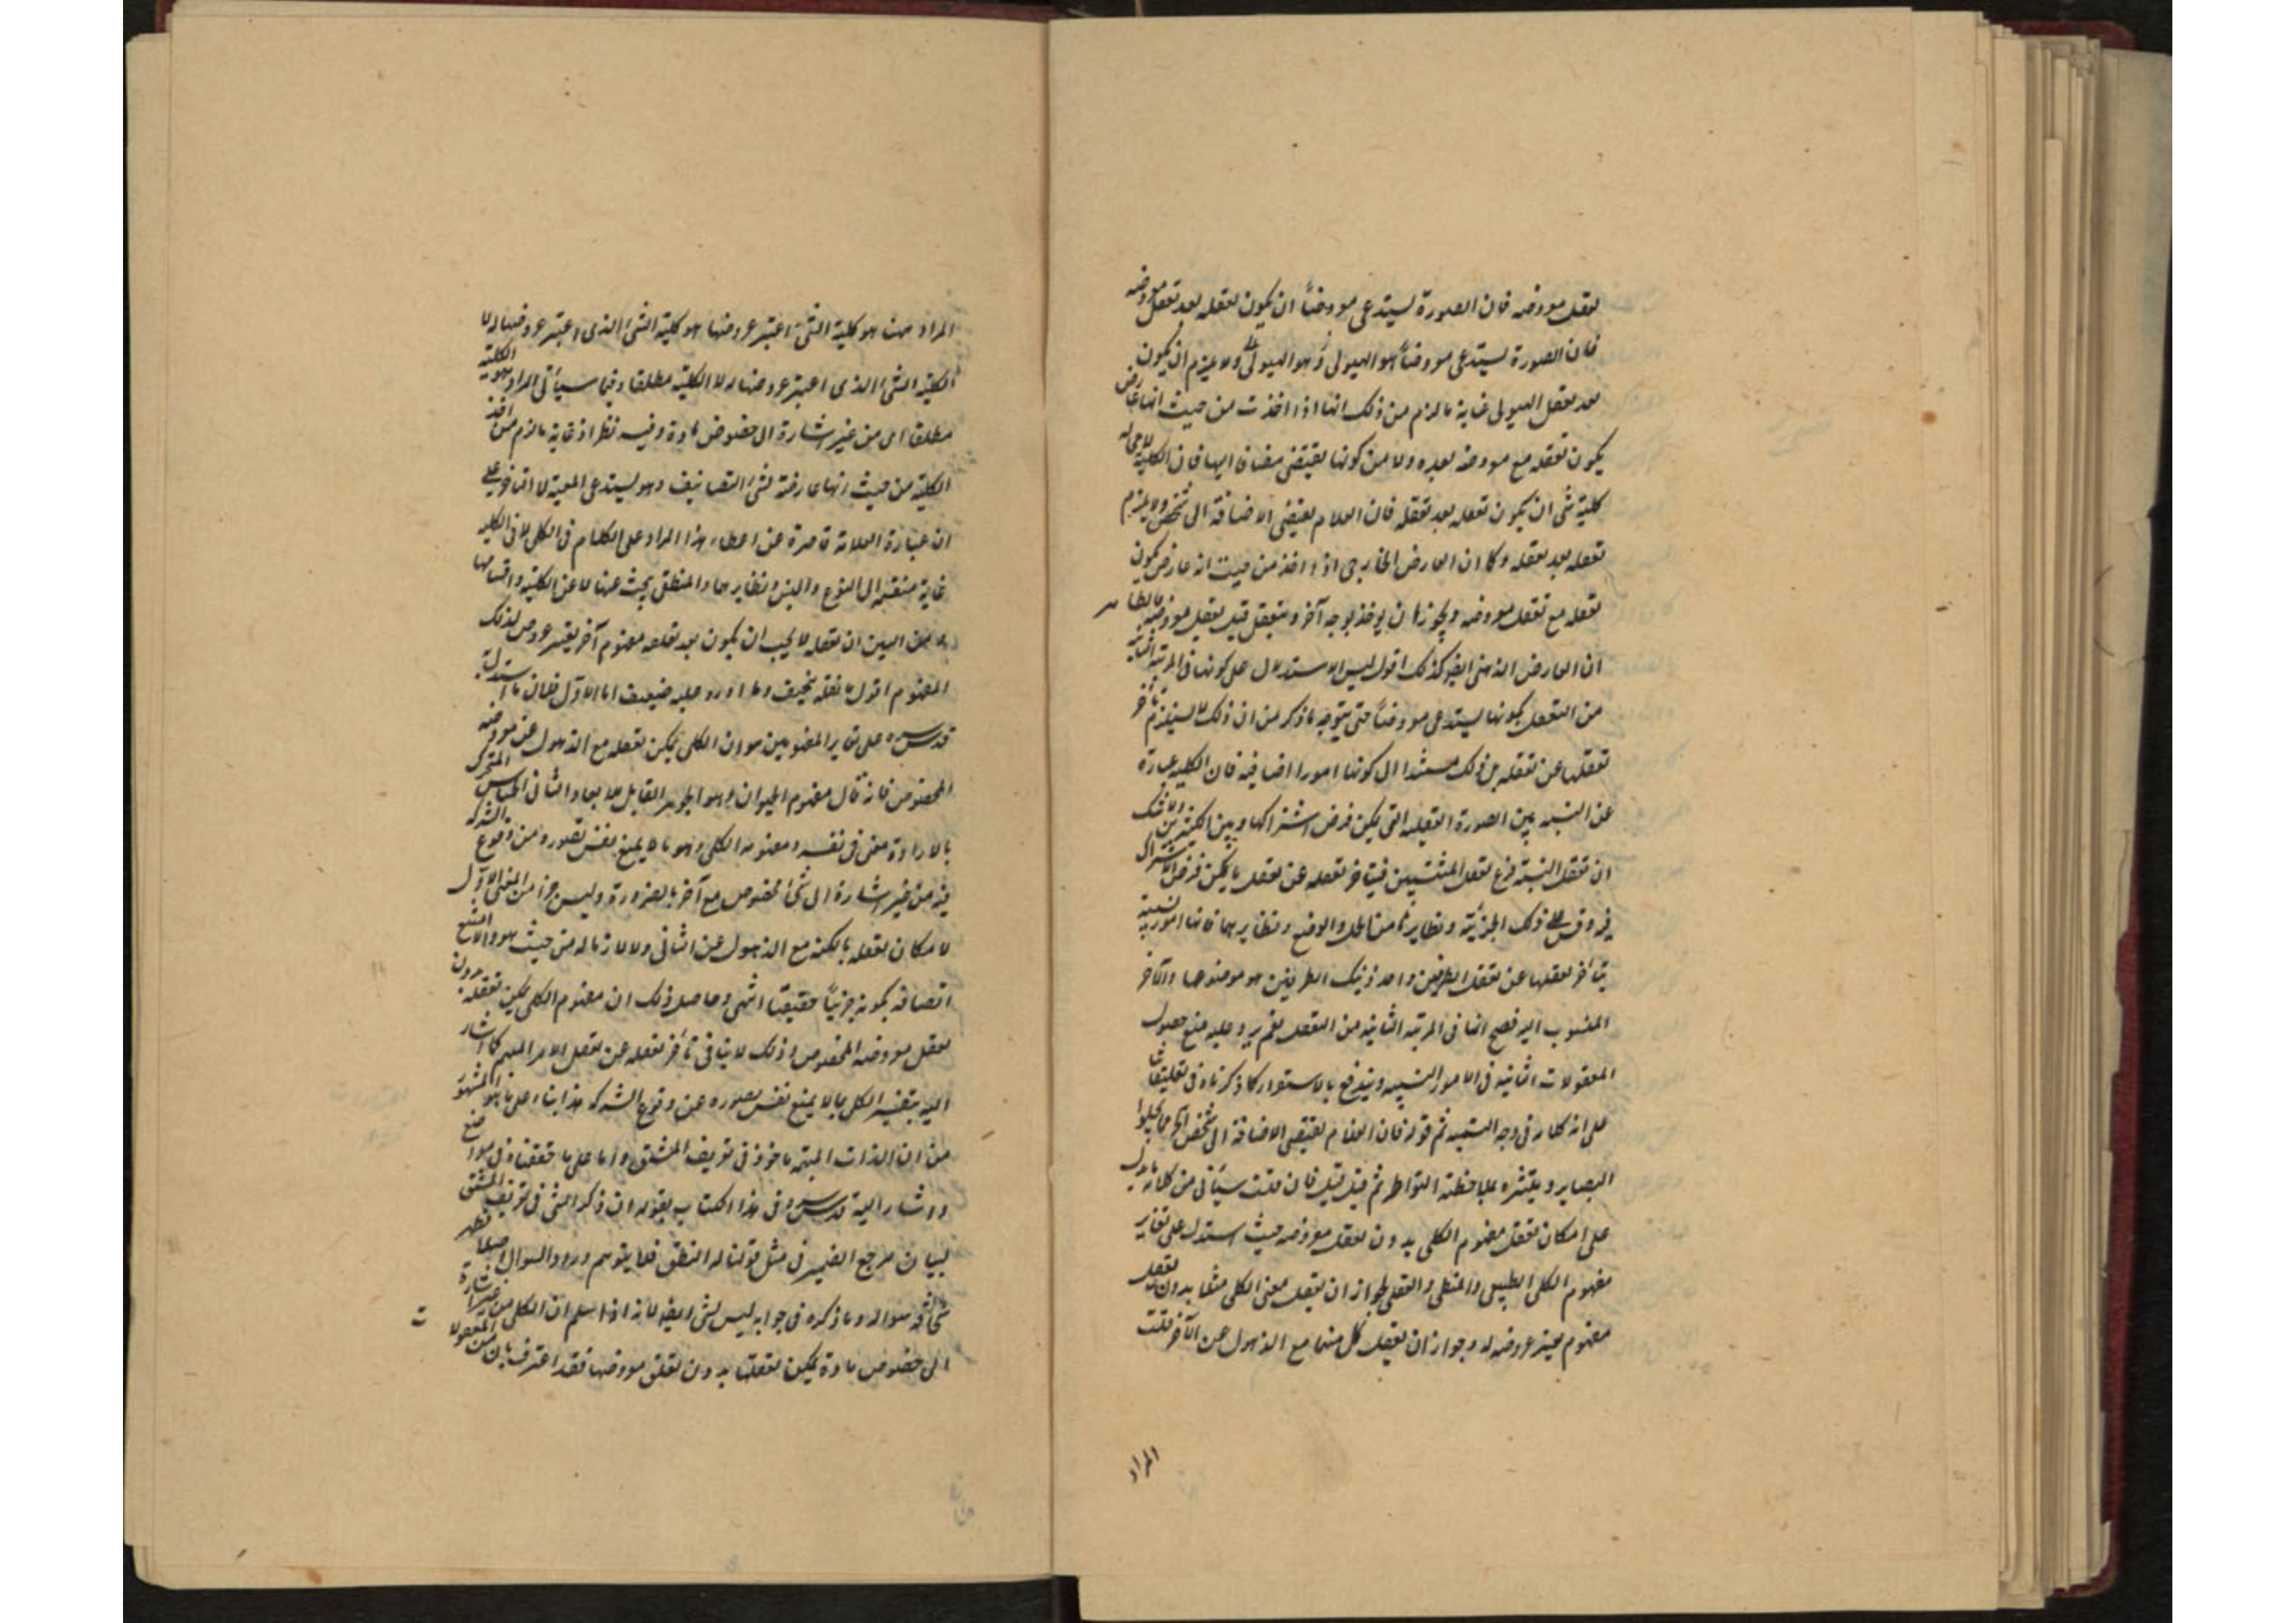 تعقل معروضه فان الصورة يستدعى معروضاً ان يكون تعقله بعد تعقل معروضه
فان الصورة يستدعى معروضاً هو الهيولى وهو الهيولى ولا يلزم ان يكون
بعد تعقل الهيولى غاية ما لزم من ذلك انها اذا اخذت من حيث انها عارض
يكون تعقله مع معروضه بعده ولا من كونها يقتضى مضافا اليها فان الكلية لا محالة
كلية شئ ان يكون تعقله بعد تعقله فان العلام يقتضى الاضافة الى شخص ولا يلزم
تعقله بعد تعقله وكما ان العارض الخارجى اذا اخذ من حيث انه عارض يكون
تعقله مع تعقل معروضه ويجوز ان يوخذ بوجه آخر ويتعقل قبل تعقل معروضه فالظاهر
ان العارض الذهنى ايضا كذلك اقول ليس الاستدلال على كونها فى المرتبة الثانية
من التعقل بكونها يستدعى معروضاً حتى يتوجه ما ذكر من ان ذلك لا يستلزم تأخر
تعقلها عن تعقله بل ذلك مستندا الى كونها امورا اضافية فان الكلية عبارة
عن النسبة بين الصورة العقلية التى يمكن فرض اشتراكها وبين الكثيرين ولا شك
ان تعقل النسبة فرع تعقل المنتسبين فيتأخر تعقله عن تعقل ما يمكن فرض الاشتراك
فيه وقس على ذلك الجزئية ونظايرهما من الحمل والوضع ونظايرهما فانها امور نسبية
يتأخر تعقلها عن تعقل الطرفين واحد ذينك الطرفين هو موضوعها والآخر
المنسوب اليه فصح انها فى المرتبة الثانية من التعقل نعم يرد عليه منع حصول
المعقولات الثانية فى الامور النسبية ويندفع بالاستقراء كما ذكرناه فى تعليقات
على انه كلام فى وجه التسمية ثم قوله فان الغلام يقتضى الاضافة الى شخص آخر
البصاير ويتنشره بملاحظته النواظر ثم قيل فان قلت سيأتى من كلامه ما يدل
على امكان تعقل مفهوم الكلى بدون تعقل معروضه حيث استدل على تغاير
مفهوم الكلى الطبيعى والمنطقى والعقلى بجواز ان يتعقل معنى الكلى مثلا بدون تعقل
مفهوم يعتبر عروضه له وجواز ان يعقل كل منهما مع الذهول عن الآخر قلت
المراد
المراد هنا هو كلية الشئ اعتبر عروضها هو كلية الشئ الذى اعتبر عروضها له لا
الكلية الشئ الذى اعتبر عروضها له لا الكلية مطلقا وفيما سيأتى المراد هو الكلية
مطلقا اى من غير اشارة الى خصوص مادة وفيه نظر اذ غاية ما لزم من اخذ
الكلية من حيث انها عارضة لشئ التضايف وهو يستدعى المعية لا التأخر على
ان عبارة العلامة قاصرة عن اعطاء هذا المراد على الكلام فى الكلى لا فى الكلية
غاية منقسمة الى النوع والجنس ونظايرهما والمنطق يبحث عنها لا عن الكلية واقسامها
من البين ان تعقله لا يجب ان يكون بعد تعقله مفهوم آخر يعتبر عروض لذلك
المفهوم اقول ما نقله سخيف وما اورد عليه ضعيف اما الاول فلان ما استدل به
قدس سره على تغاير المفهومين هو ان الكلى يمكن تعقله مع الذهول عن معروضه
المخصوص فانه قال مفهوم الحيوان وهو الجوهر القابل للابعاد الثانى الحساس المتحرك
بالارادة معنى فى نفسه ومفهوم الكلى وهو ما لا يمنع نفس تصوره من وقوع الشركة
فيه من غير اشارة الى شئ مخصوص مع آخر بالضرورة وليس جزأ من المعنى الاول
لامكان تعقله بالكنه مع الذهول عن الثانى ولا لازما له من حيث هو والا امتنع
اتصافه بكونه جزئياً حقيقيا انتهى وحاصل ذلك ان مفهوم الكلى يمكن تعقله بدون
تعقل معروضه المخصوص وذلك لا ينافى تأخر تعقله عن تعقل الامر المبهم كما اشار
اليه بتفسير الكلى بما لا يمنع نفس تصوره عن وقوع الشركة هذا بناء على ما هو المشهور
من ان الذات المبهمة ماخوذ فى تعريف المشتق واما على ما حققناه فى مواضع
واشار اليه قدس سره فى هذا الكتاب بقوله ان ذكر الشئ فى تعريف المشتق
لبيان مرجع الضمير فى مثل قولنا له النطق فلا يتوهم ورود السوال اصلا فظهر
سخافة سواله وما ذكره فى جوابه ليس بشئ ايضا لانه اذا سلم ان الكلى من غير اشارة
الى خصوص مادة يمكن تعقلها بدون تعقل معروضها فقد اعترف بان من المعقولات